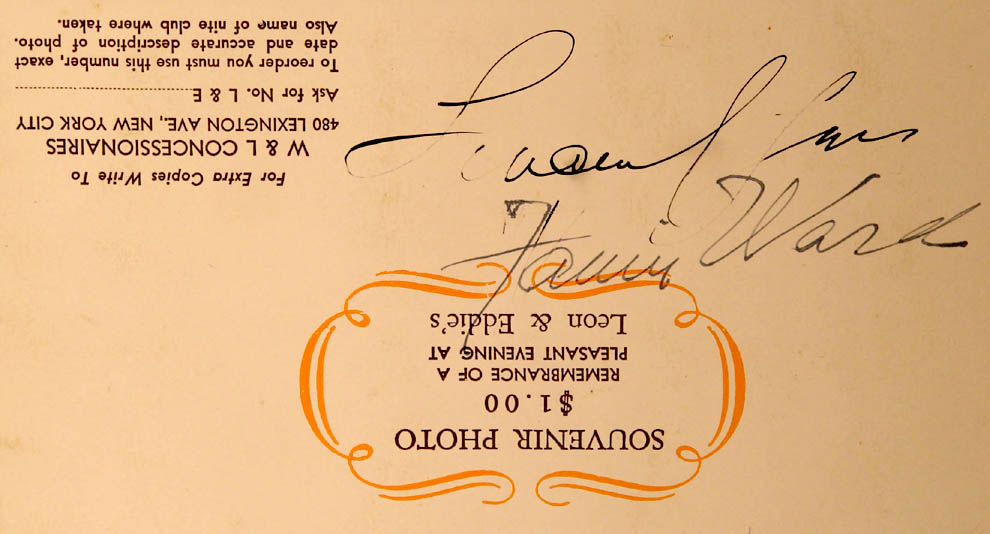 Fannie Ward
SOUVENIR PHOTO
$1.00
REMEMBRANCE OF A
PLEASANT EVENING AT
Leon & Eddie's
For Extra Copies Write To
W & L CONCESSIONAIRES
480 LEXINGTON AVE., NEW YORK CITY
Ask for No. L & E
To reorder you must use this number, exact
date and accurate description of photo.
Also name of nite club where taken.